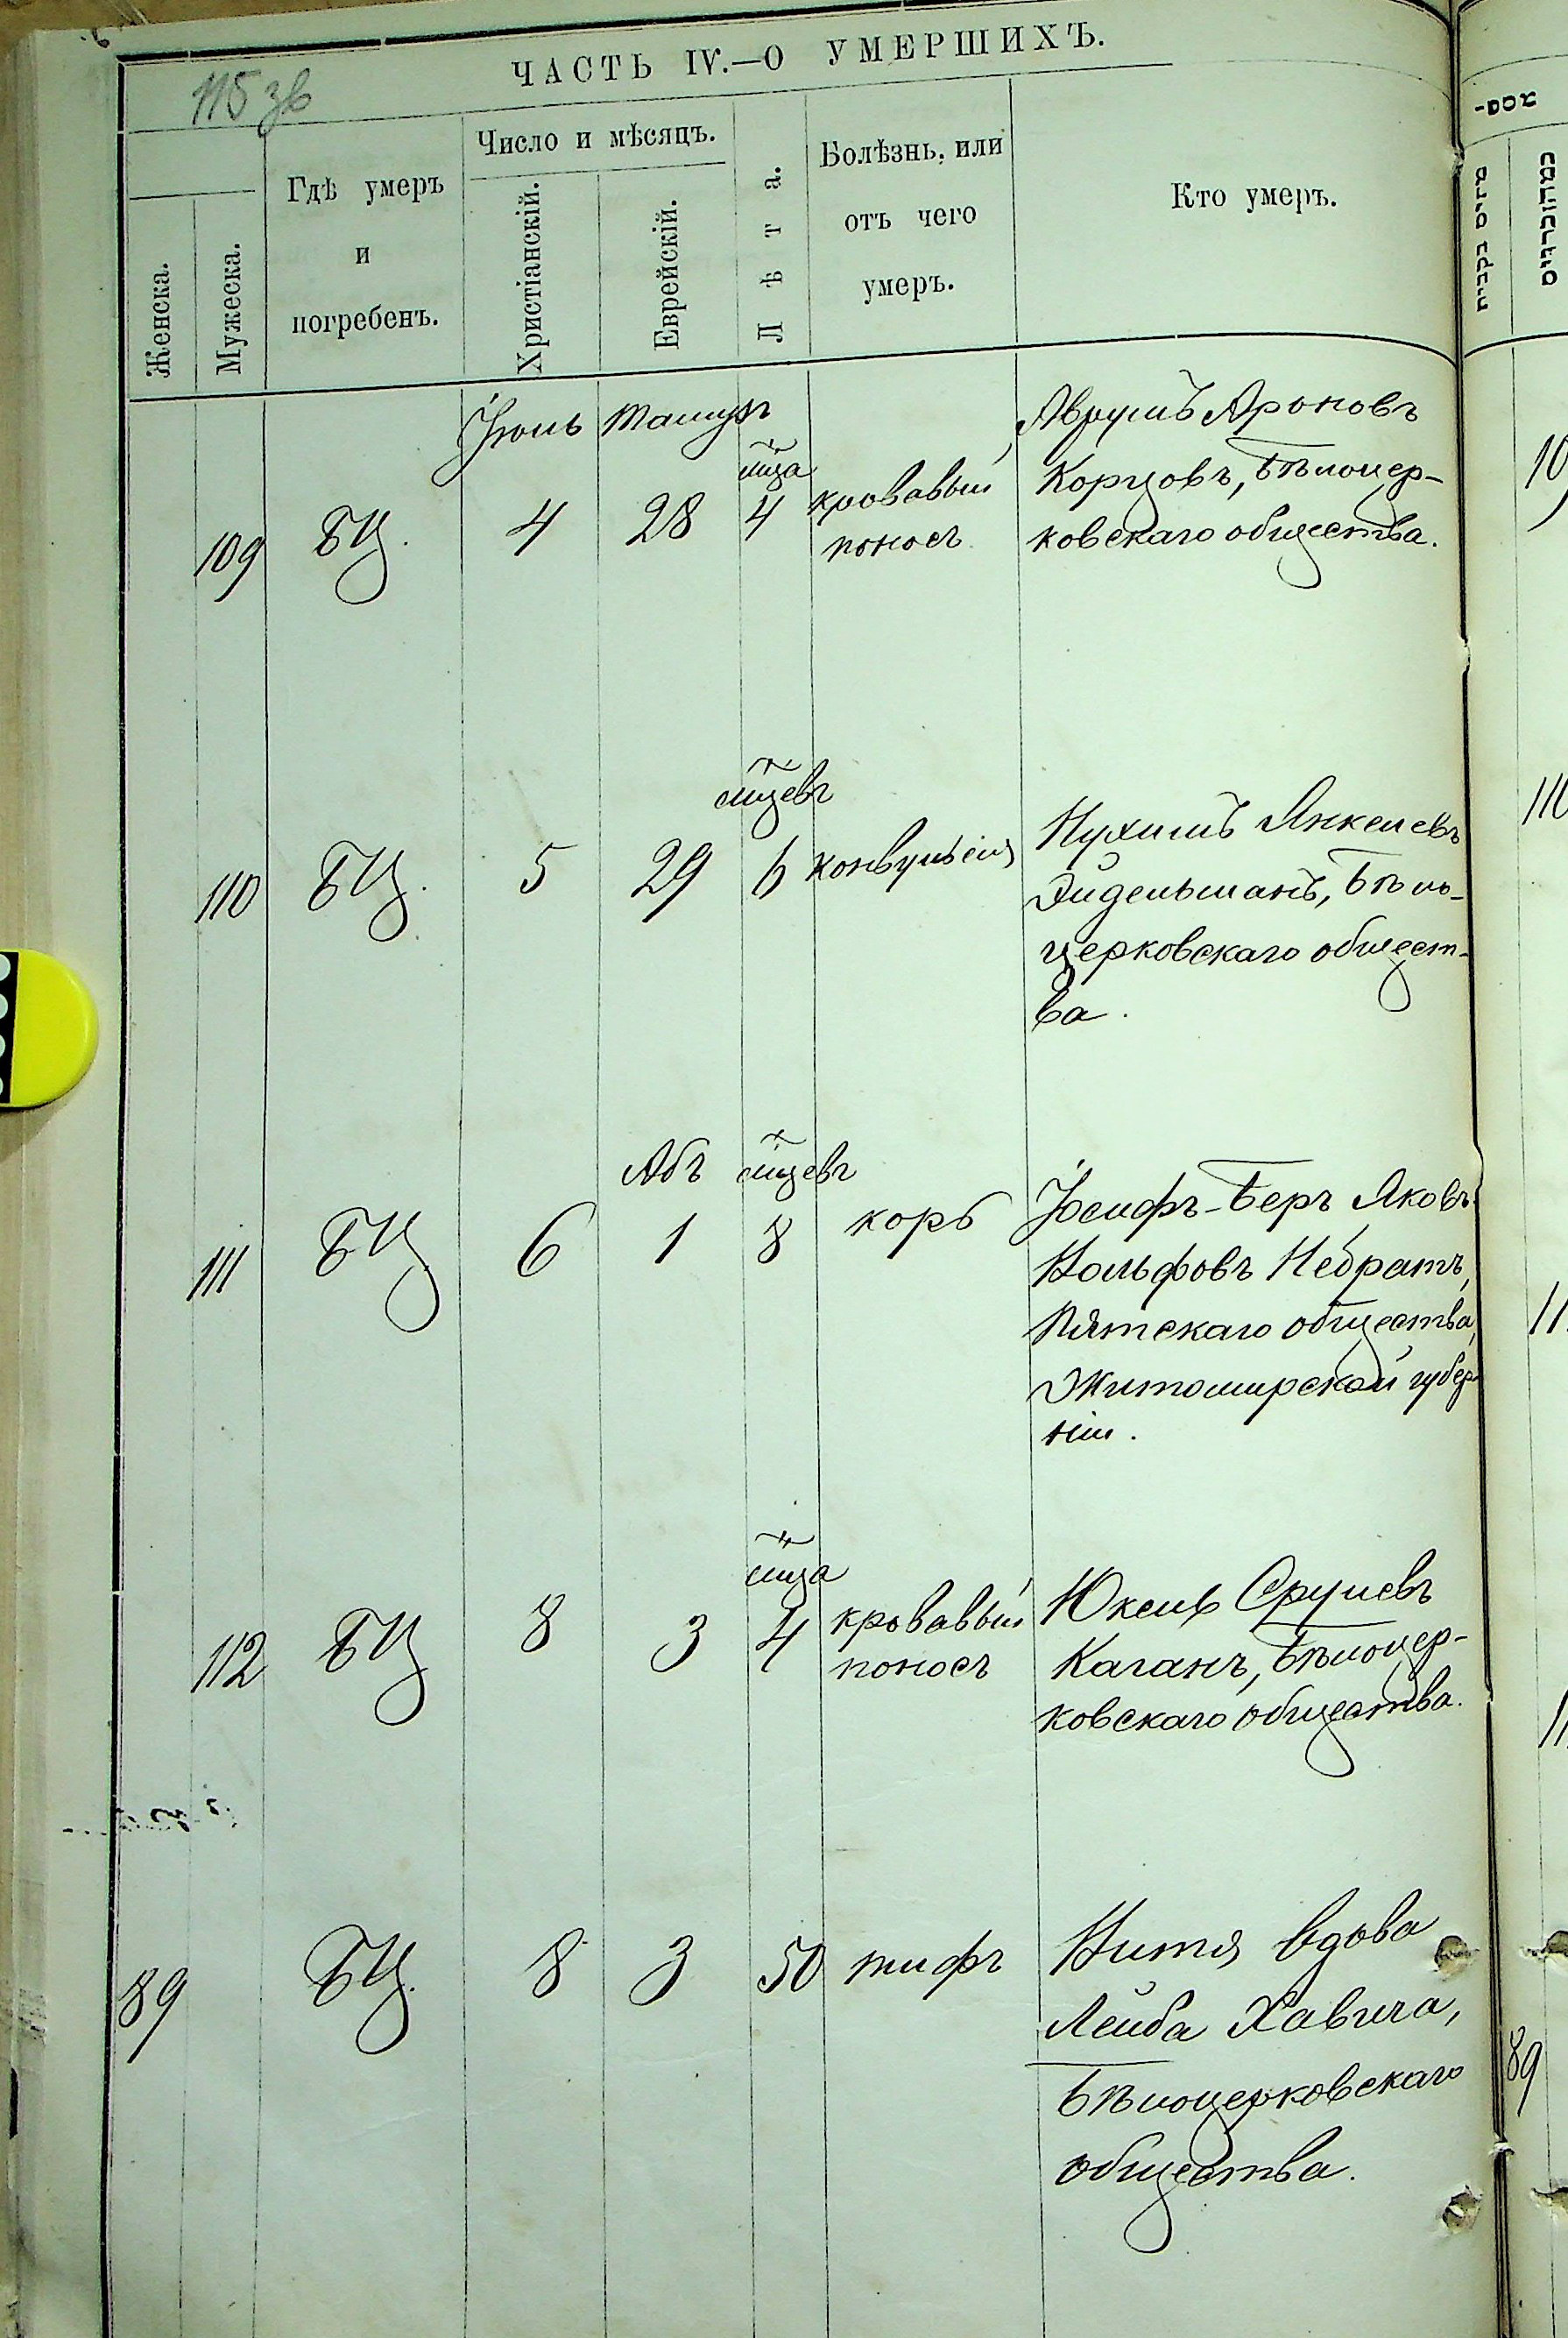 115 зв
ЧАСТЬ IV.—О УМЕРШИХЪ.
Женска.
Мужеска.
Гдѣ умеръ
и
погребенъ.
Число и мѣсяцъ.
Христіанскій.
Еврейскій.
Лѣта.
Болѣзнь, или
отъ чего
умеръ.
Кто умеръ.
Іюль Тамузъ
109 БЦ. 4 28 мца 4 кровавый
поносъ
Аврумъ Ароновъ
Корцовъ, Бѣлоцер-
ковскаго общества.
110 БЦ. 5 29 мцевъ 6 конвульсія
Нухимъ Янкелевъ
Эйдельманъ, Бѣло-
церковскаго общест-
ва.
Абъ
111 БЦ 6 1 мцевъ 8 корь
Іосифъ-Беръ Яковъ
Вольфовъ Небратъ,
Пятскаго общества,
Житомирской губер-
ніи.
112 БЦ 8 3 мца 4 кровавый
поносъ
Юкель Срулевъ
Каганъ, Бѣлоцер-
ковскаго общества.
89 БЦ. 8 3 50 тифъ
Витя вдова
Лейба Хавича,
Бѣлоцерковскаго
общества.
110
89